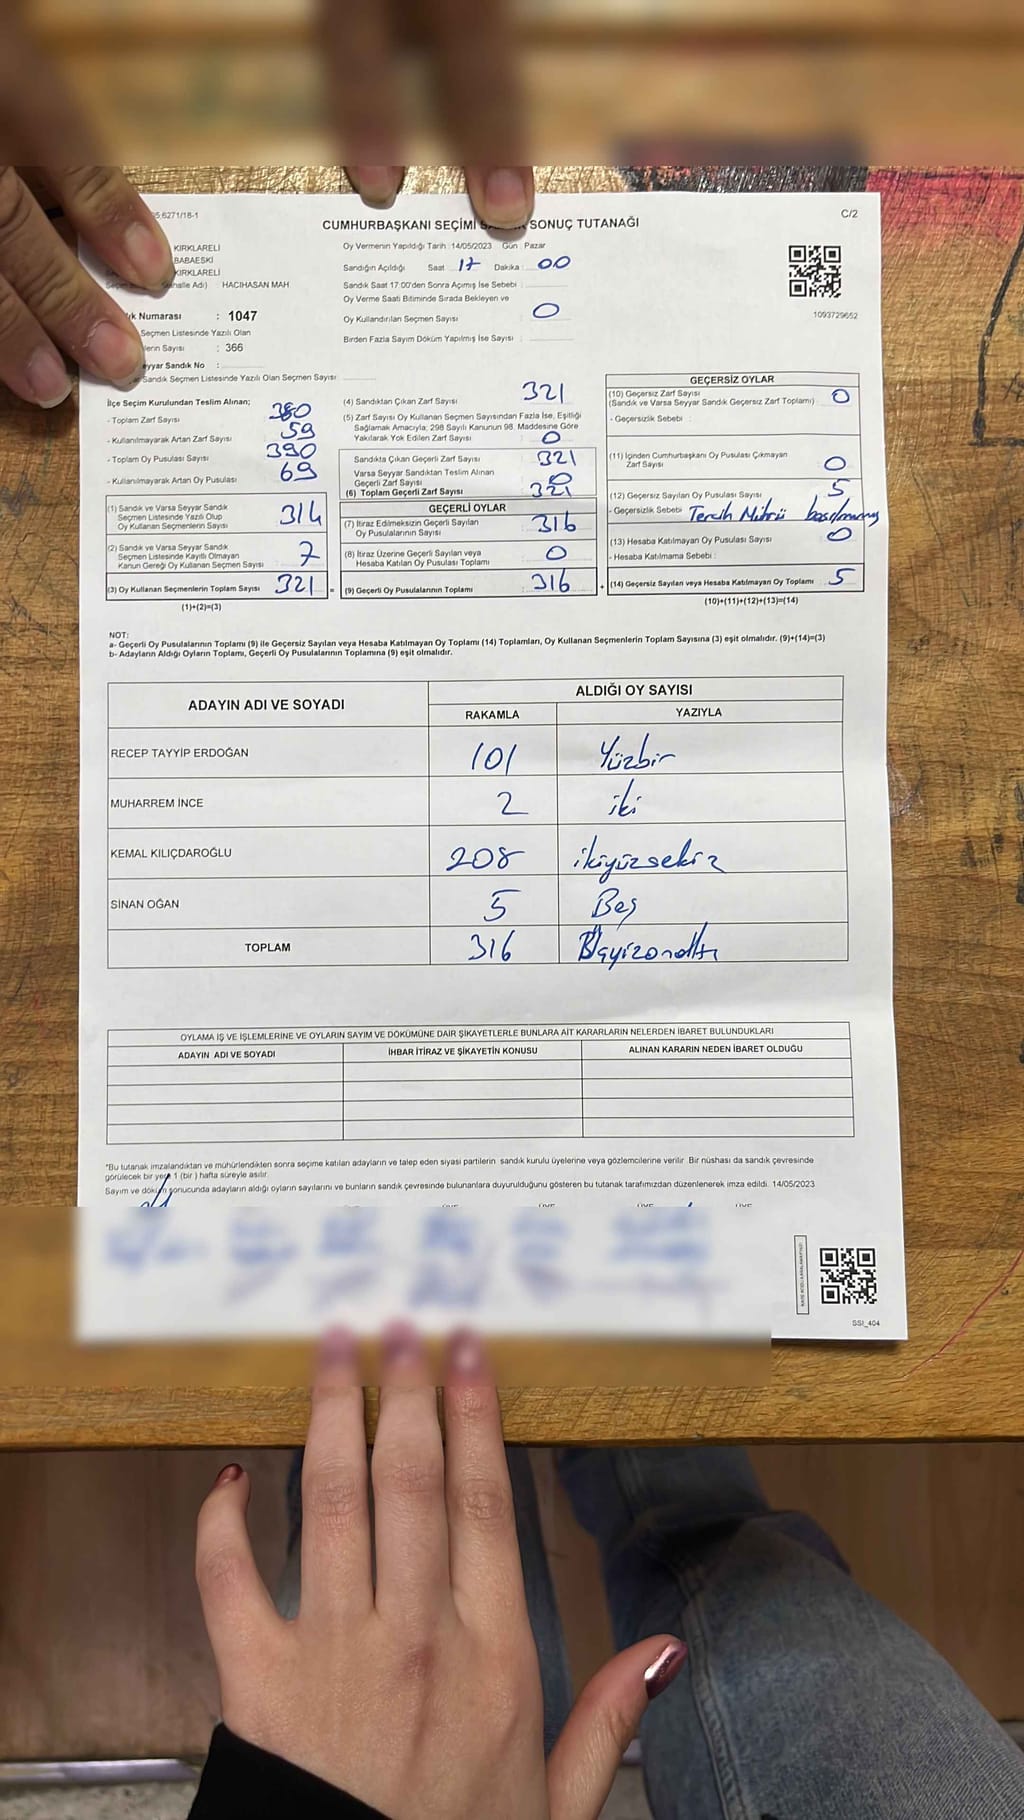 5.6271/18-1
C/2
CUMHURBAŞKANI SEÇİMİ SONUÇ TUTANAĞI
KIRKLARELİ
BABAESKİ
KIRKLARELİ
Mahalle Adı) : HACIHASAN MAH
Numarası : 1047
Seçmen Listesinde Yazılı Olan
Sayısı : 366
Seyyar Sandık No :
Sandık Seçmen Listesinde Yazılı Olan Seçmen Sayısı
Oy Vermenin Yapıldığı Tarih : 14/05/2023 Gün : Pazar
Sandığın Açıldığı Saat 17 Dakika : 00
Sandık Saat 17:00'den Sonra Açımış İse Sebebi :
Oy Verme Saati Bitiminde Sırada Bekleyen ve
Oy Kullandırılan Seçmen Sayısı 0
Birden Fazla Sayım Döküm Yapılmış İse Sayısı :
1093729652
İlçe Seçim Kurulundan Teslim Alınan;
- Toplam Zarf Sayısı 380
- Kullanılmayarak Artan Zarf Sayısı 59
- Toplam Oy Pusulası Sayısı 390
- Kullanılmayarak Artan Oy Pusulası 69
(1) Sandık ve Varsa Seyyar Sandık
Seçmen Listesinde Yazılı Olup
Oy Kullanan Seçmenlerin Sayısı 314
(2) Sandık ve Varsa Seyyar Sandık
Seçmen Listesinde Kayıtlı Olmayan
Kanun Gereği Oy Kullanan Seçmen Sayısı 7
(3) Oy Kullanan Seçmenlerin Toplam Sayısı 321 =
(1)+(2)=(3)
(4) Sandıktan Çıkan Zarf Sayısı 321
(5) Zarf Sayısı Oy Kullanan Seçmen Sayısından Fazla İse, Eşitliği
Sağlamak Amacıyla; 298 Sayılı Kanunun 98. Maddesine Göre
Yakılarak Yok Edilen Zarf Sayısı 0
Sandıkta Çıkan Geçerli Zarf Sayısı 321
Varsa Seyyar Sandıktan Teslim Alınan
Geçerli Zarf Sayısı 0
(6) Toplam Geçerli Zarf Sayısı 321
GEÇERLİ OYLAR
(7) İtiraz Edilmeksizin Geçerli Sayılan
Oy Pusulalarının Sayısı 316
(8) İtiraz Üzerine Geçerli Sayılan veya
Hesaba Katılan Oy Pusulası Toplamı 0
(9) Geçerli Oy Pusulalarının Toplamı 316 +
GEÇERSİZ OYLAR
(10) Geçersiz Zarf Sayısı
(Sandık ve Varsa Seyyar Sandık Geçersiz Zarf Toplamı) : 0
- Geçersizlik Sebebi :
(11) İçinden Cumhurbaşkanı Oy Pusulası Çıkmayan
Zarf Sayısı 0
(12) Geçersiz Sayılan Oy Pusulası Sayısı 5
- Geçersizlik Sebebi Tercih Mührü basılmamış
(13) Hesaba Katılmayan Oy Pusulası Sayısı 0
- Hesaba Katılmama Sebebi :
(14) Geçersiz Sayılan veya Hesaba Katılmayan Oy Toplamı 5
(10)+(11)+(12)+(13)=(14)
NOT:
a- Geçerli Oy Pusulalarının Toplamı (9) ile Geçersiz Sayılan veya Hesaba Katılmayan Oy Toplamı (14) Toplamları, Oy Kullanan Seçmenlerin Toplam Sayısına (3) eşit olmalıdır. (9)+(14)=(3)
b- Adayların Aldığı Oyların Toplamı, Geçerli Oy Pusulalarının Toplamına (9) eşit olmalıdır.
ADAYIN ADI VE SOYADI ALDIĞI OY SAYISI
RAKAMLA YAZIYLA
RECEP TAYYİP ERDOĞAN 101 Yüzbir
MUHARREM İNCE 2 iki
KEMAL KILIÇDAROĞLU 208 ikiyüzsekiz
SİNAN OĞAN 5 Beş
TOPLAM 316
OYLAMA İŞ VE İŞLEMLERİNE VE OYLARIN SAYIM VE DÖKÜMÜNE DAİR ŞİKAYETLERLE BUNLARA AİT KARARLARIN NELERDEN İBARET BULUNDUKLARI
ADAYIN ADI VE SOYADI İHBAR İTİRAZ VE ŞİKAYETİN KONUSU ALINAN KARARIN NEDEN İBARET OLDUĞU
*Bu tutanak imzalandıktan ve mühürlendikten sonra seçime katılan adayların ve talep eden siyasi partilerin sandık kurulu üyelerine veya gözlemcilerine verilir. Bir nüshası da sandık çevresinde
görülecek bir yere 1 (bir) hafta süreyle asılır.
Sayım ve döküm sonucunda adayların aldığı oyların sayılarını ve bunların sandık çevresinde bulunanlara duyurulduğunu gösteren bu tutanak tarafımızdan düzenlenerek imza edildi. 14/05/2023
SSI_404